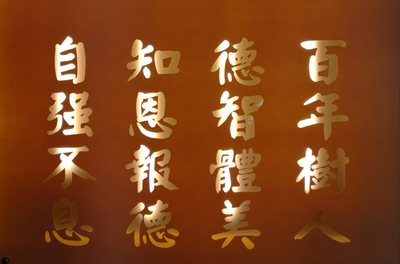 百年樹人
德智體美
知恩報德
自强不息